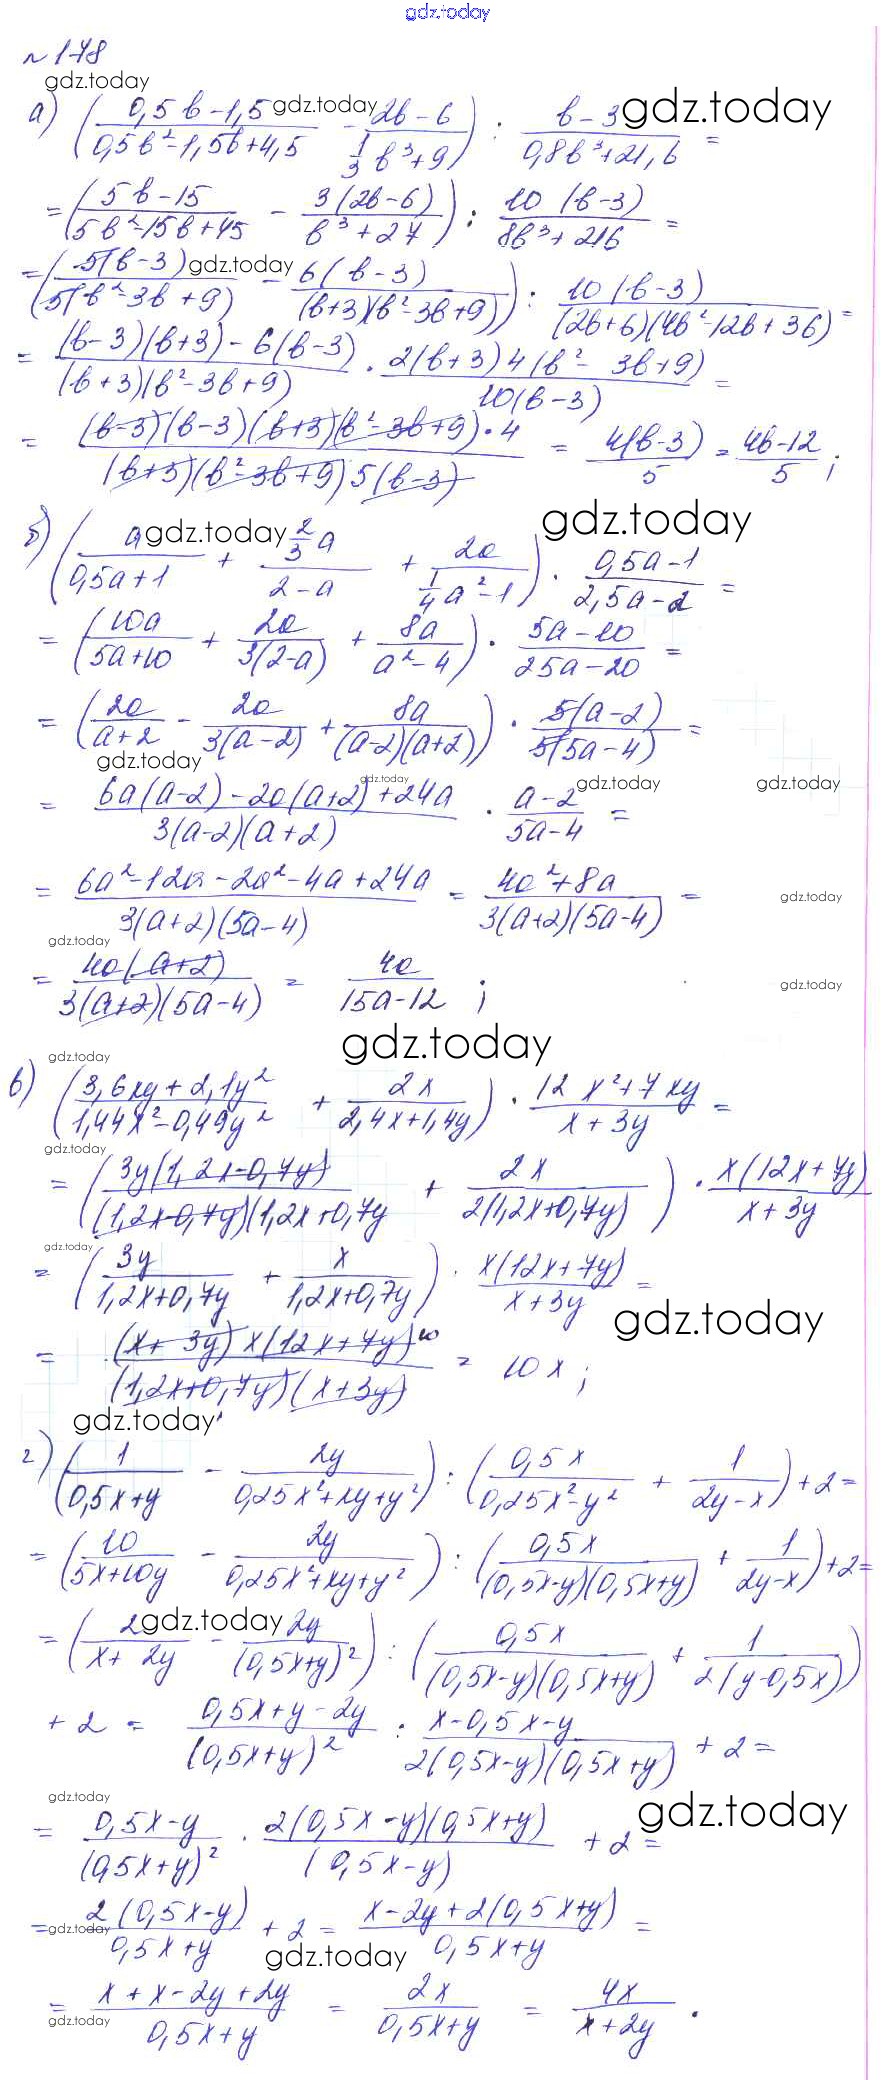 gdz.today
№178
gdz.today
а) ((0,5b-1,5)/(0,5b²-1,5b+4,5) - (2b-6)/(1/3 b³+9)) : (b-3)/(0,8b³+21,6) =
gdz.today gdz.today
= ((5b-15)/(5b²-15b+45) - 3(2b-6)/(b³+27)) : 10(b-3)/(8b³+216) =
= (5(b-3)/(5(b²-3b+9)) - 6(b-3)/((b+3)(b²-3b+9))) : 10(b-3)/((2b+6)(4b²-12b+36)) =
gdz.today
= ((b-3)(b+3)-6(b-3))/((b+3)(b²-3b+9)) · 2(b+3)4(b²-3b+9)/(10(b-3)) =
= (b-3)(b-3)(b+3)(b²-3b+9)·4/((b+3)(b²-3b+9)5(b-3)) = 4(b-3)/5 = (4b-12)/5 ;
gdz.today gdz.today
б) (a/(0,5a+1) + (2/3 a)/(2-a) + 2a/(1/4 a²-1)) · (0,5a-1)/(2,5a-2) =
= (10a/(5a+10) + 2a/(3(2-a)) + 8a/(a²-4)) · (5a-10)/(25a-20) =
= (2a/(a+2) - 2a/(3(a-2)) + 8a/((a-2)(a+2))) · 5(a-2)/(5(5a-4)) =
gdz.today gdz.today gdz.today gdz.today
= (6a(a-2)-2a(a+2)+24a)/(3(a-2)(a+2)) · (a-2)/(5a-4) =
= (6a²-12a-2a²-4a+24a)/(3(a+2)(5a-4)) = (4a²+8a)/(3(a+2)(5a-4)) =
gdz.today
gdz.today
= 4a(a+2)/(3(a+2)(5a-4)) = 4a/(15a-12) ;
gdz.today
gdz.today
gdz.today
в) ((3,6xy+2,1y²)/(1,44x²-0,49y²) + 2x/(2,4x+1,4y)) · (12x²+7xy)/(x+3y) =
gdz.today
= (3y(1,2x-0,7y)/((1,2x-0,7y)(1,2x+0,7y) + 2x/(2(1,2x+0,7y))) · x(12x+7y)/(x+3y)
gdz.today
= (3y/(1,2x+0,7y) + x/(1,2x+0,7y)) · x(12x+7y)/(x+3y) =
gdz.today
= (x+3y)x(12x+7y)10/((1,2x+0,7y)(x+3y)) = 10x ;
gdz.today
г) (1/(0,5x+y) - 2y/(0,25x²+xy+y²)) : (0,5x/(0,25x²-y²) + 1/(2y-x)) + 2 =
= (10/(5x+10y) - 2y/(0,25x²+xy+y²)) : (0,5x/((0,5x-y)(0,5x+y)) + 1/(2y-x)) + 2 =
gdz.today
= (2/(x+2y) - 2y/(0,5x+y)²) : (0,5x/((0,5x-y)(0,5x+y)) + 1/(2(y-0,5x)))
+ 2 = (0,5x+y-2y)/(0,5x+y)² : (x-0,5x-y)/(2(0,5x-y)(0,5x+y)) + 2 =
gdz.today
gdz.today
= (0,5x-y)/(0,5x+y)² · 2(0,5x-y)(0,5x+y)/(0,5x-y) + 2 =
= 2(0,5x-y)/(0,5x+y) + 2 = (x-2y+2(0,5x+y))/(0,5x+y) =
gdz.today
gdz.today
= (x+x-2y+2y)/(0,5x+y) = 2x/(0,5x+y) = 4x/(x+2y) .
gdz.today